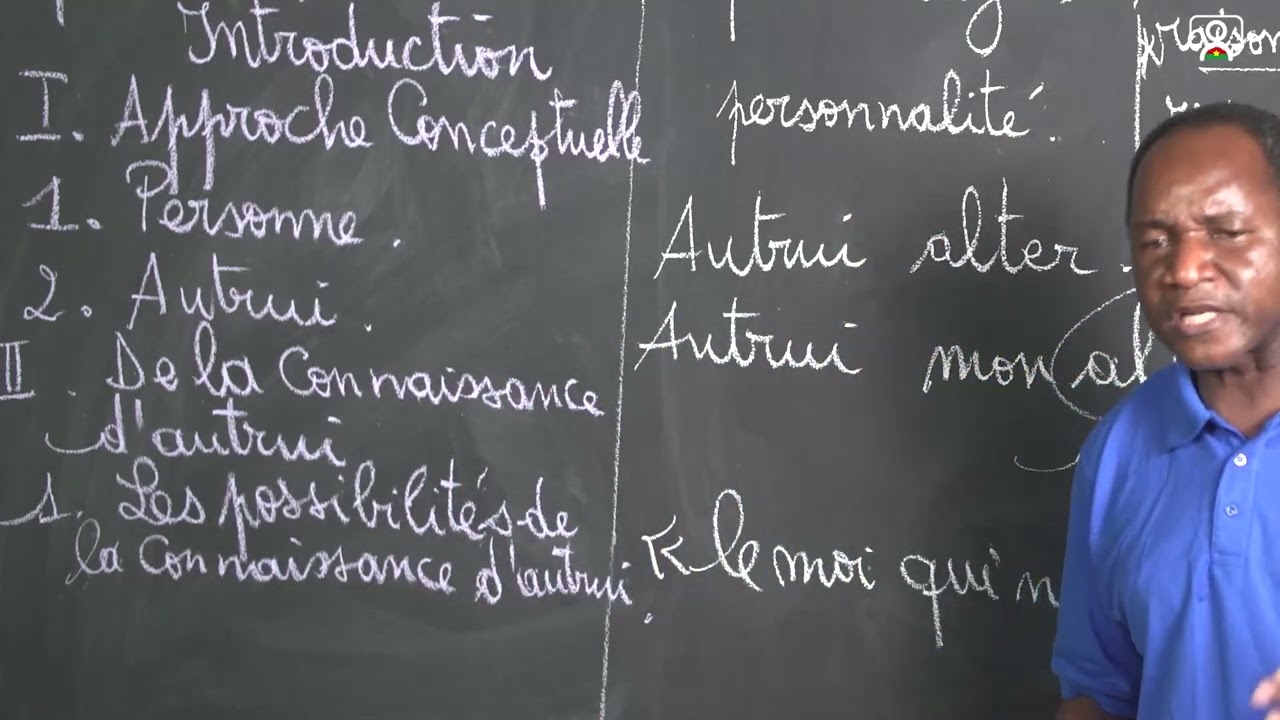 Introduction
I. Approche Conceptuelle
1. Personne.
2. Autrui.
II. De la Connaissance
d'autrui
1. Les possibilités de
la Connaissance d'autrui.
personnalité.
Autrui alter
Autrui mon
le moi qui n